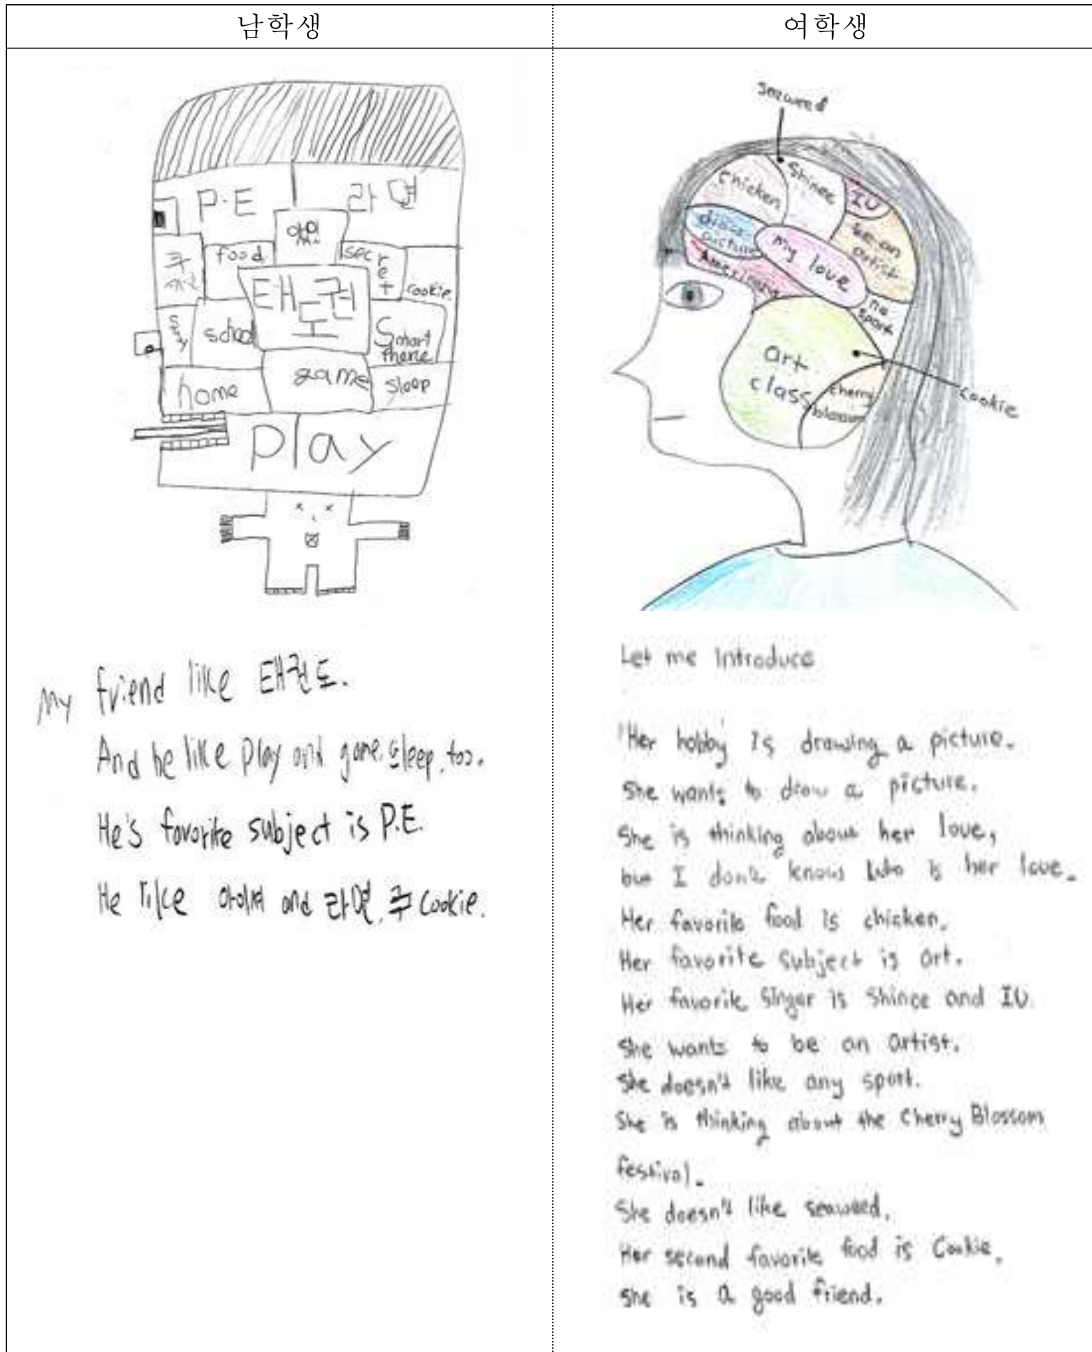 남학생
여학생
P.E
라면
food
secret
cookie
태권도
study
school
smart phone
home
game
sleep
play
seaweed
chicken
Shinee
IU
be an artist
my love
no sport
art class
cherry blossom
cookie
My friend like 태권도.
And he like play and game, sleep, too.
He's favorite subject is P.E.
He like and 라면, cookie.
Let me introduce
Her hobby is drawing a picture.
She wants to draw a picture.
She is thinking about her love,
but I don't know who is her love.
Her favorite food is chicken.
Her favorite subject is art.
Her favorite singer is Shinee and IU.
She wants to be an artist.
She doesn't like any sport.
She is thinking about the Cherry Blossom
festival.
She doesn't like seaweed.
Her second favorite food is Cookie.
She is a good friend.